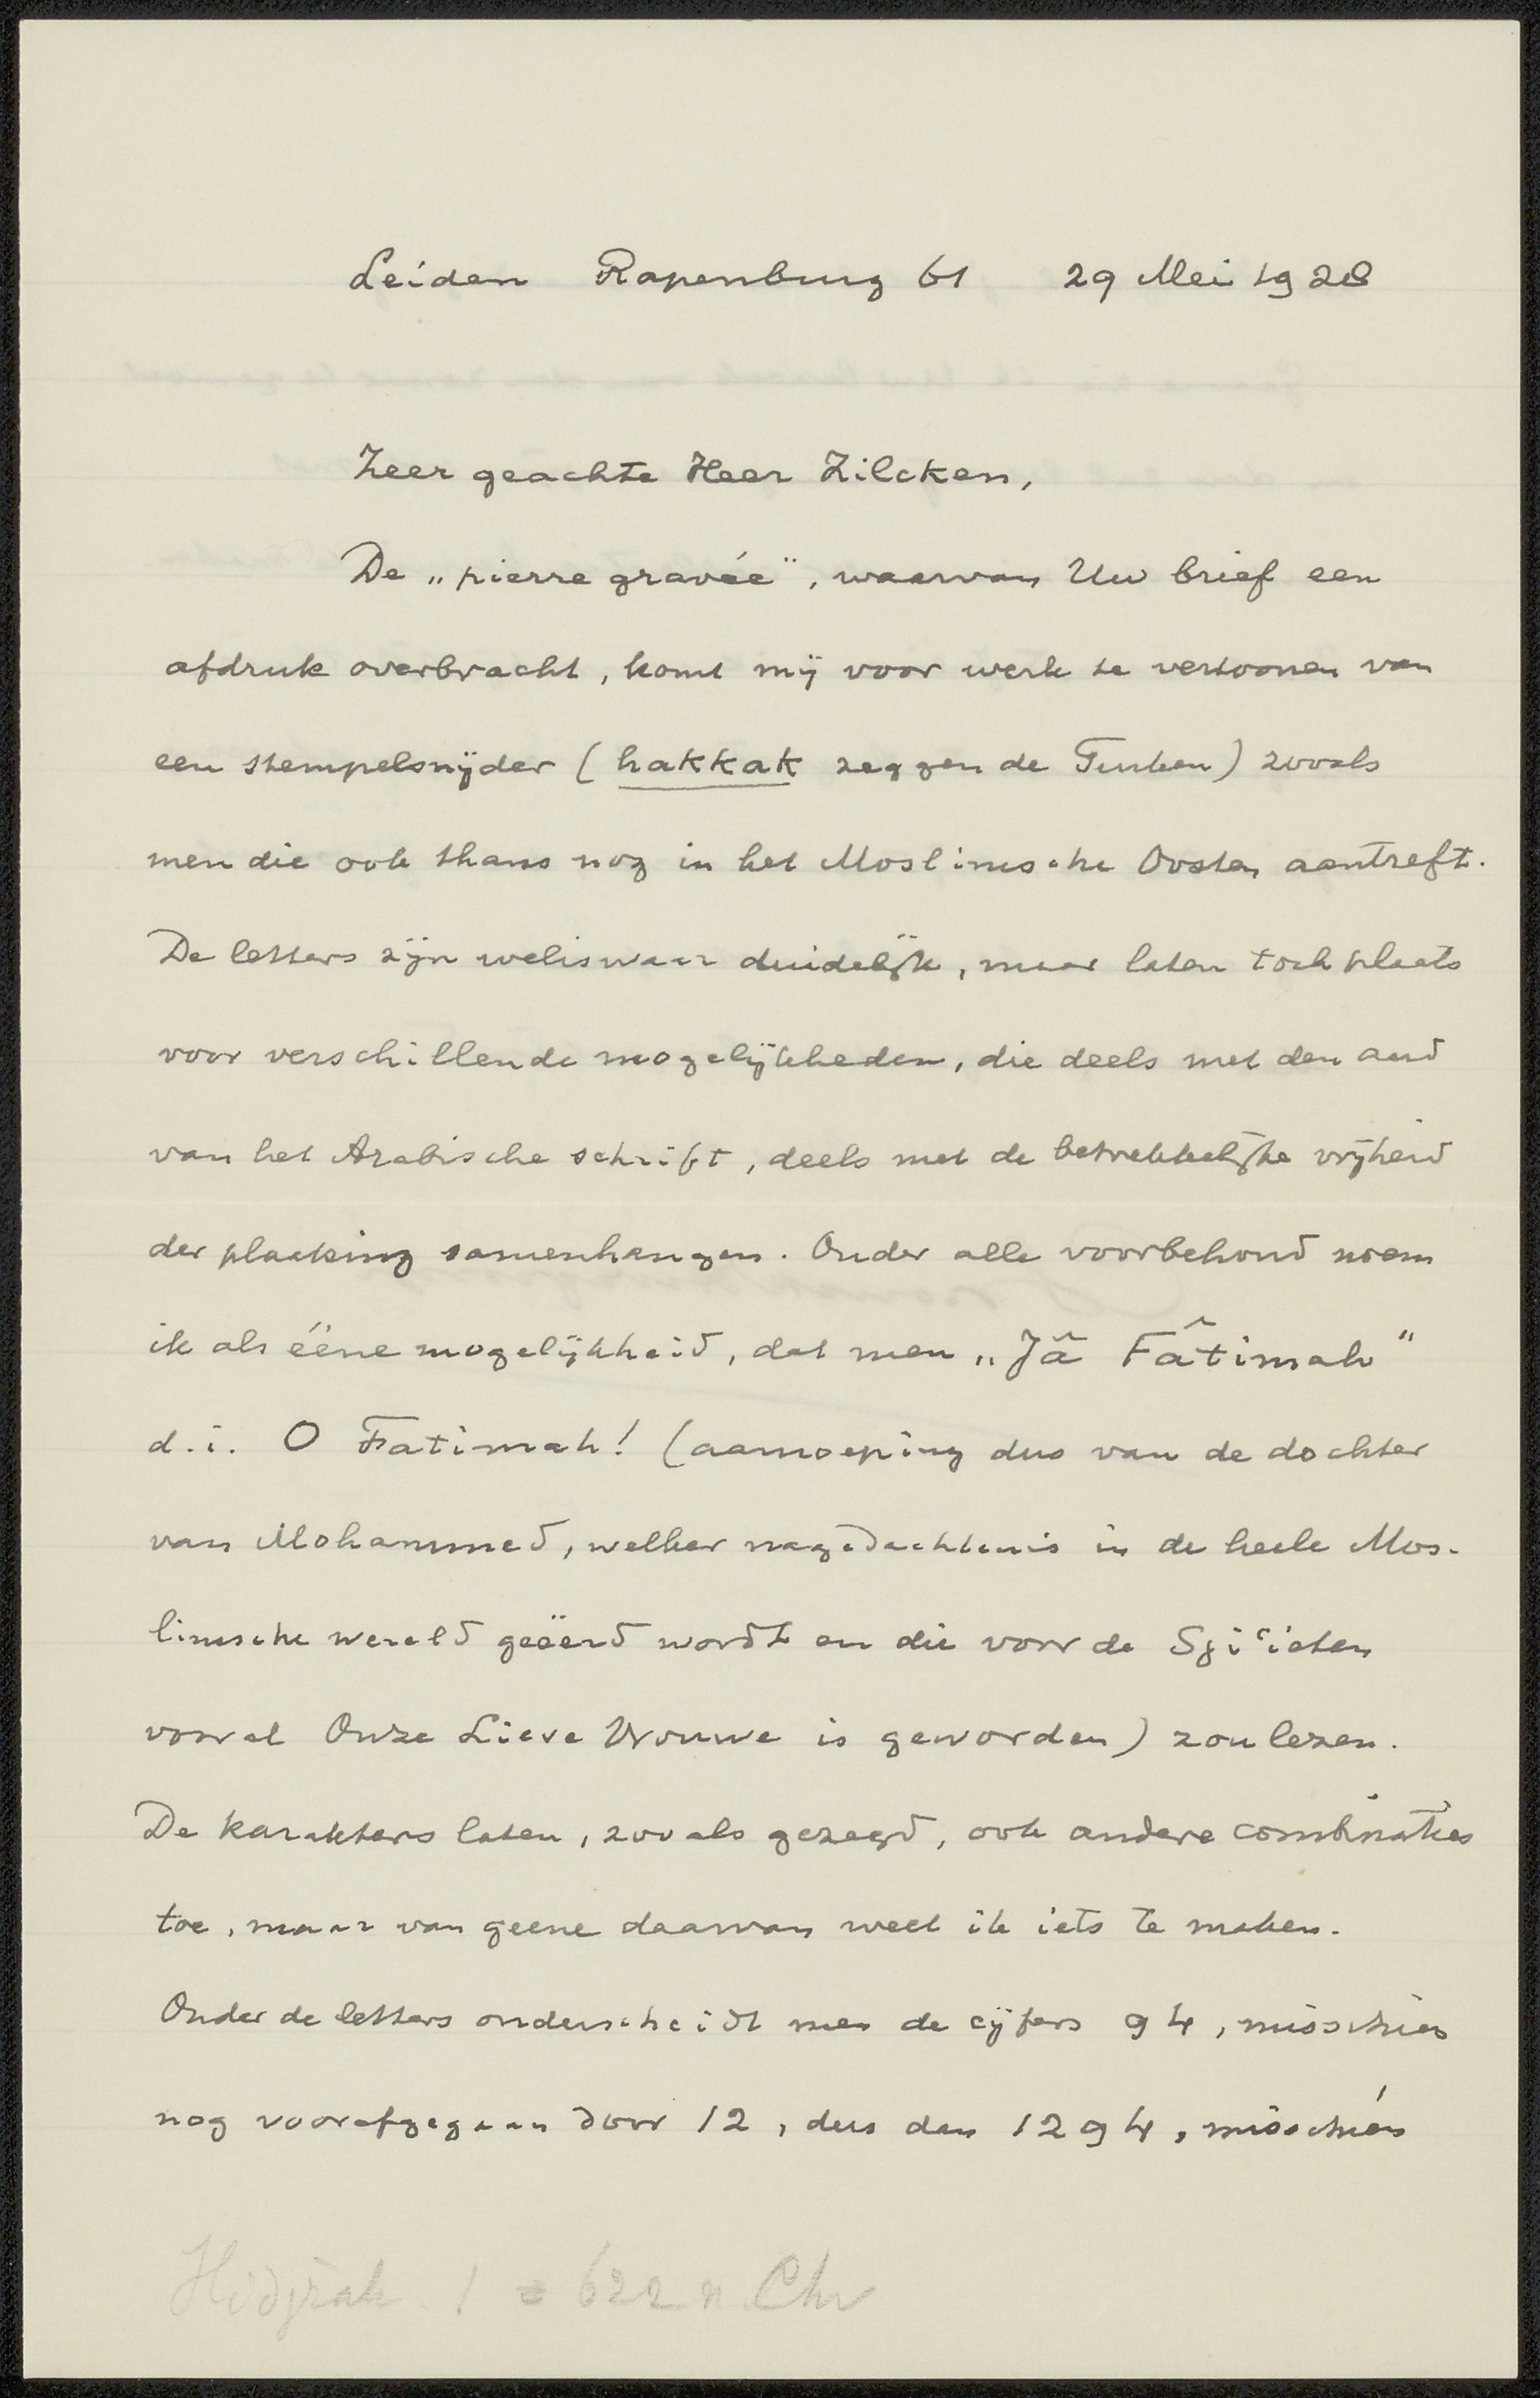 Leiden Rapenburg 61 29 Mei 1928
Zeer geachte Heer Zilcken,
De „pierre gravée", waarvan Uw brief een
afdruk overbracht, komt mij voor werk te vertoonen van
een stempelsnijder (hakkak zeggen de Turken) zooals
men die ook thans nog in het Moslimsche Oosten aantreft.
De letters zijn weliswaar duidelijk, maar laten toch plaats
voor verschillende mogelijkheden, die deels met den aard
van het Arabische schrift, deels met de betrekkelijke vrijheid
der plaatsing samenhangen. Onder alle voorbehoud noem
ik als ééne mogelijkheid, dat men „Jâ Fâtimah"
d.i. O Fatimah! (aanroeping dus van de dochter
van Mohammed, welker nagedachtenis in de heele Mos-
limsche wereld geëerd wordt en die voor de Sji'ieten
vooral Onze Lieve Vrouwe is geworden) zou lezen.
De karakters laten, zooals gezegd, ook andere combinaties
toe, maar van geene daarvan weet ik iets te maken.
Onder de letters onderscheidt men de cijfers 94, misschien
nog voorafgegaan door 12, dus dan 1294, misschien
Hidjrah 1 = 622 n. Chr